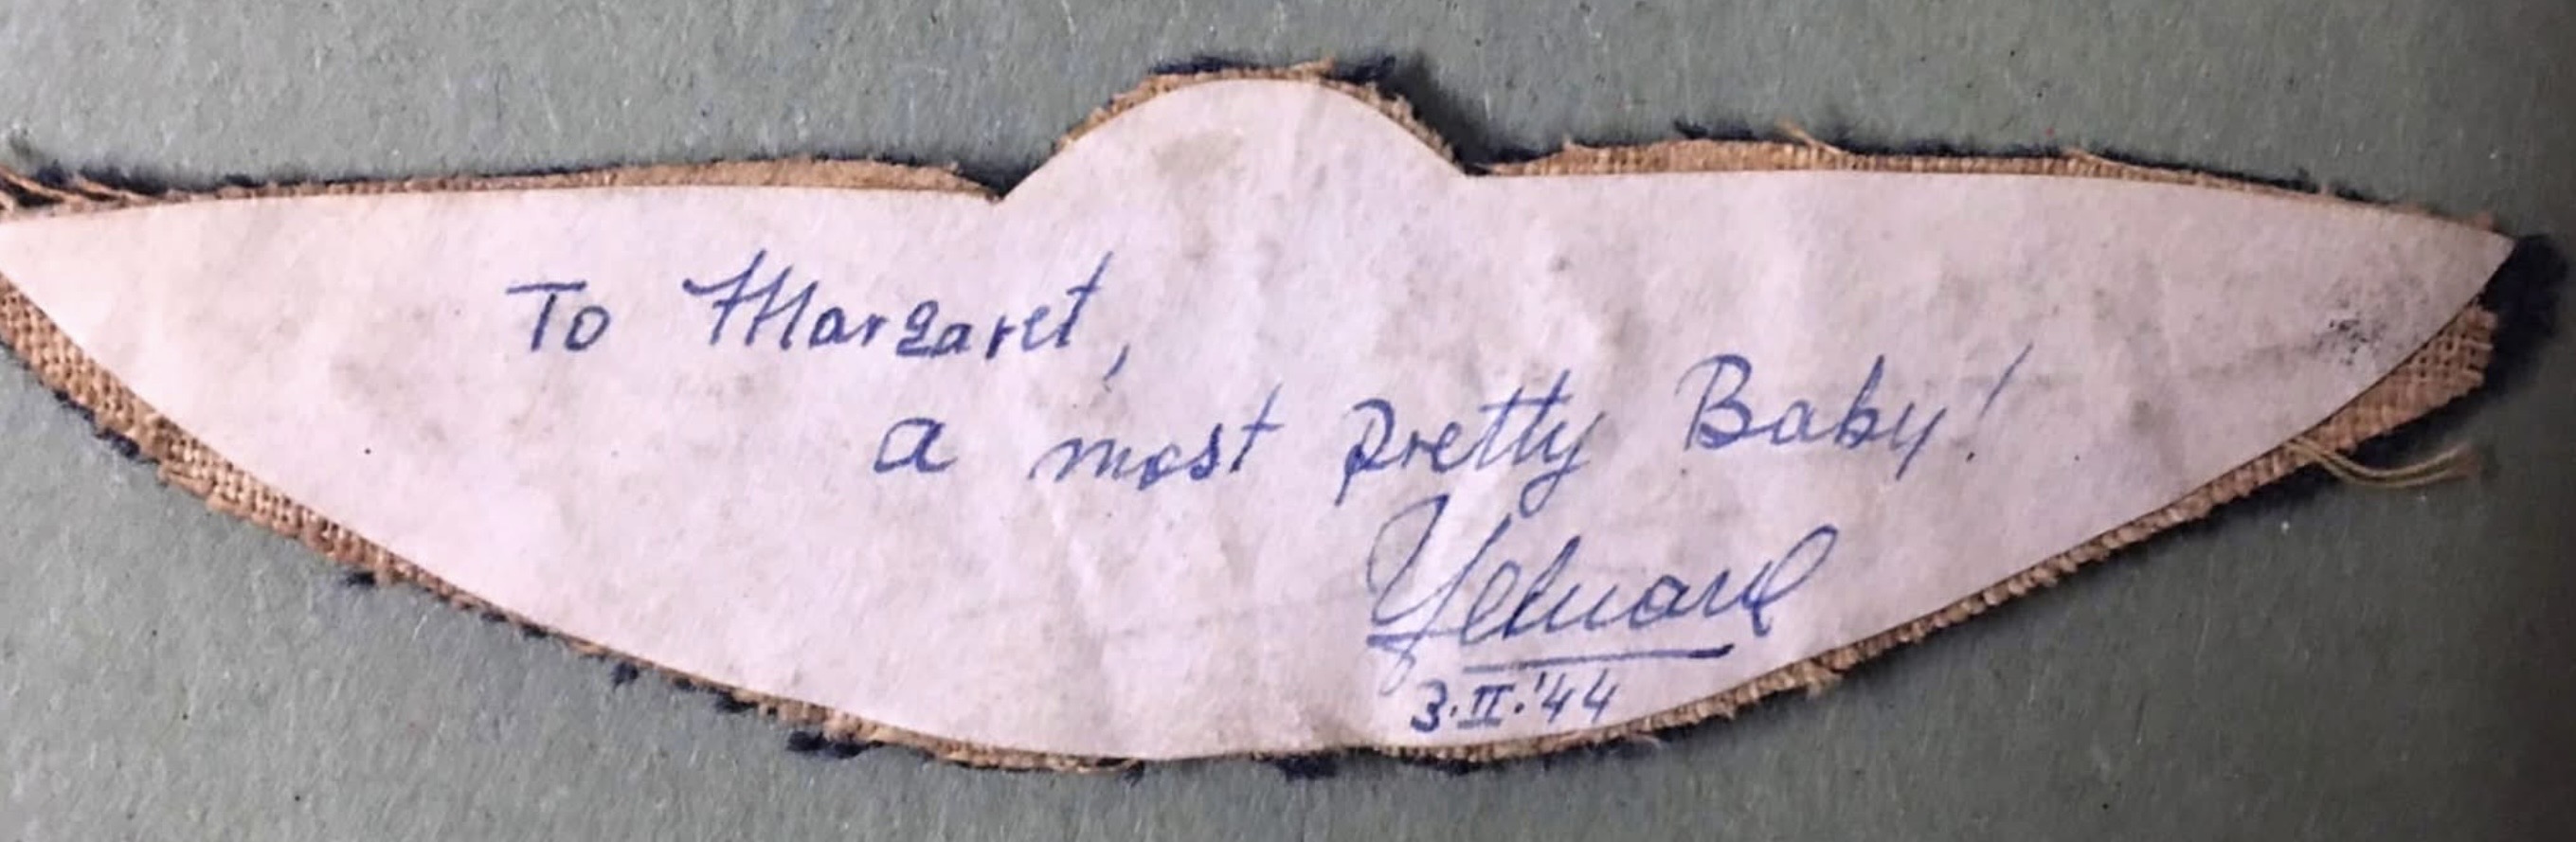 To Margaret,
a most pretty Baby!
3.II.'44